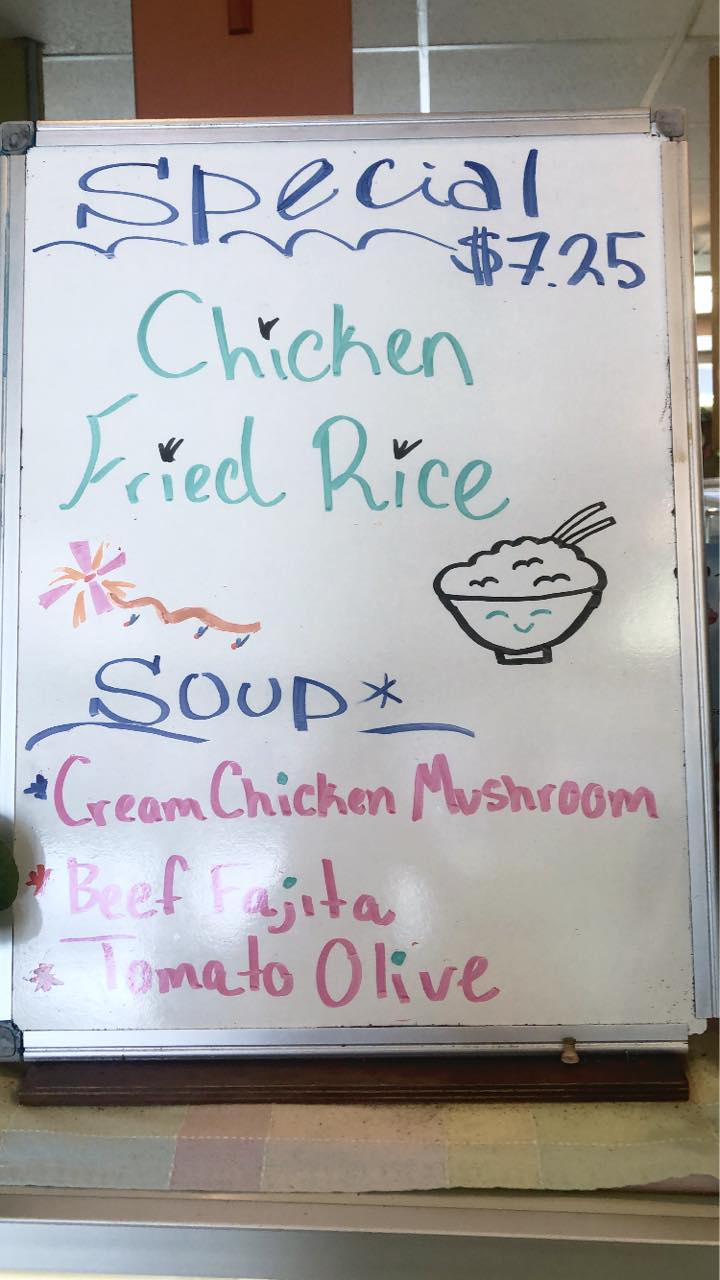 Special
$7.25
Chicken
Fried Rice
Soup*
*Cream Chicken Mushroom
*Beef Fajita
*Tomato Olive